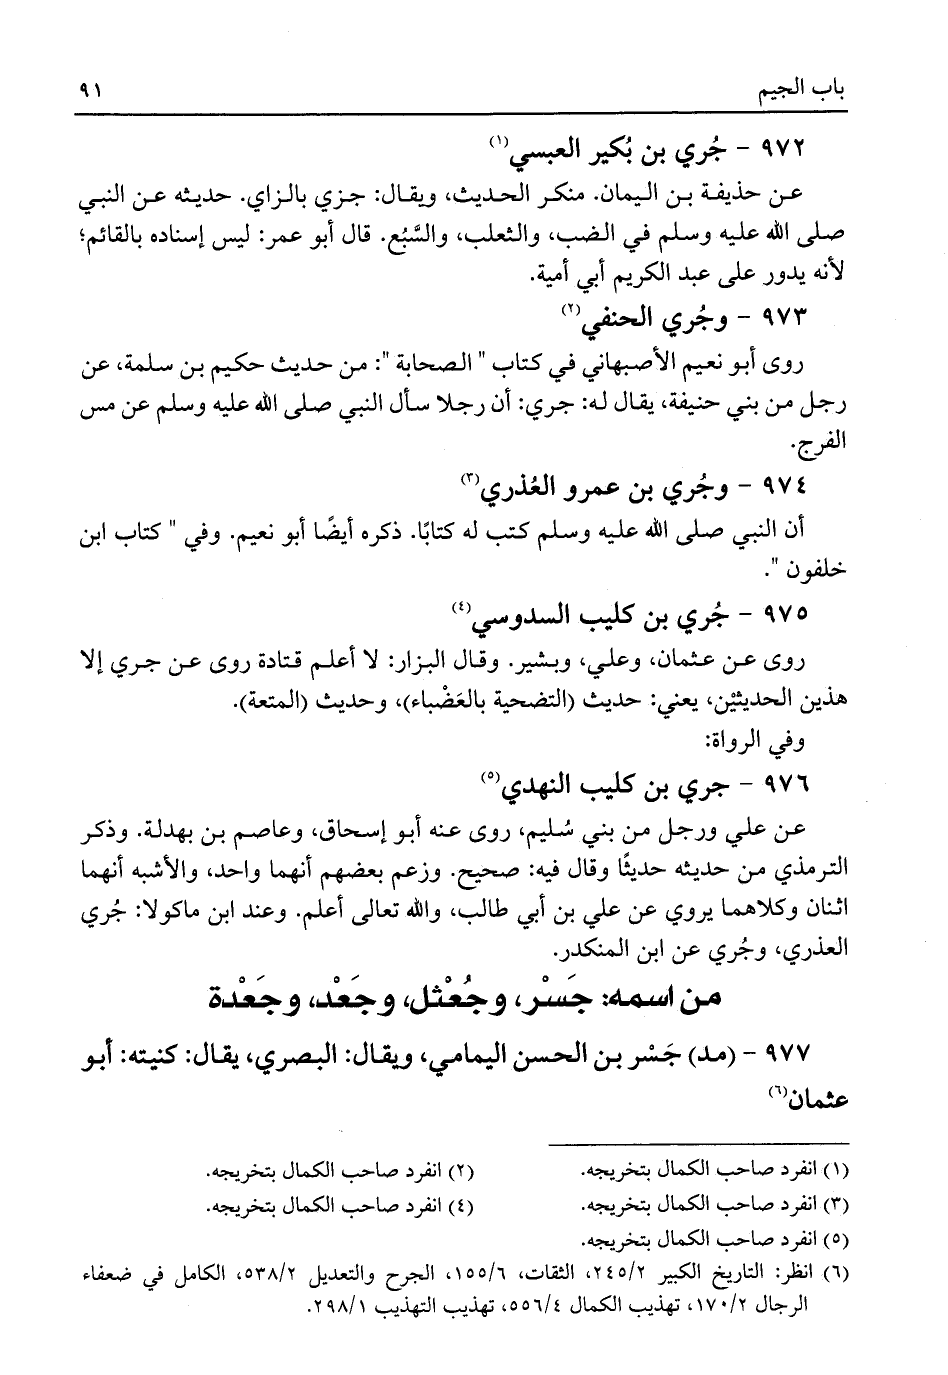 باب الجيم ٩١
٩٧٢ - جُري بن بُكير العبسي(١)
عن حذيفة بن اليمان. منكر الحديث، ويقال: جزي بالزاي. حديثه عن النبي
صلى الله عليه وسلم في الضب، والثعلب، والسَّبُع. قال أبو عمر: ليس إسناده بالقائم؛
لأنه يدور على عبد الكريم أبي أمية.
٩٧٣ - وجُري الحنفي(٢)
روى أبو نعيم الأصبهاني في كتاب " الصحابة ": من حديث حكيم بن سلمة، عن
رجل من بني حنيفة، يقال له: جري: أن رجلا سأل النبي صلى الله عليه وسلم عن مس
الفرج.
٩٧٤ - وجُري بن عمرو العُذري(٣)
أن النبي صلى الله عليه وسلم كتب له كتابًا. ذكره أيضًا أبو نعيم. وفي " كتاب ابن
خلفون ".
٩٧٥ - جُري بن كليب السدوسي(٤)
روى عن عثمان، وعلي، وبشير. وقال البزار: لا أعلم قتادة روى عن جري إلا
هذين الحديثيْن، يعني: حديث (التضحية بالعَضْباء)، وحديث (المتعة).
وفي الرواة:
٩٧٦ - جري بن كليب النهدي(٥)
عن علي ورجل من بني سُليم، روى عنه أبو إسحاق، وعاصم بن بهدلة. وذكر
الترمذي من حديثه حديثًا وقال فيه: صحيح. وزعم بعضهم أنهما واحد، والأشبه أنهما
اثنان وكلاهما يروي عن علي بن أبي طالب، والله تعالى أعلم. وعند ابن ماكولا: جُري
العذري، وجُري عن ابن المنكدر.
من اسمه: جَسْر، وجُعْثل، وجَعْد، وجَعْدة
٩٧٧ - (مد) جَسْر بن الحسن اليمامي، ويقال: البصري، يقال: كنيته: أبو
عثمان(٦)
(١) انفرد صاحب الكمال بتخريجه. (٢) انفرد صاحب الكمال بتخريجه.
(٣) انفرد صاحب الكمال بتخريجه. (٤) انفرد صاحب الكمال بتخريجه.
(٥) انفرد صاحب الكمال بتخريجه.
(٦) انظر: التاريخ الكبير ٢٤٥/٢، الثقات، ١٥٥/٦، الجرح والتعديل ٥٣٨/٢، الكامل في ضعفاء
الرجال ١٧٠/٢، تهذيب الكمال ٥٥٦/٤، تهذيب التهذيب ٢٩٨/١.